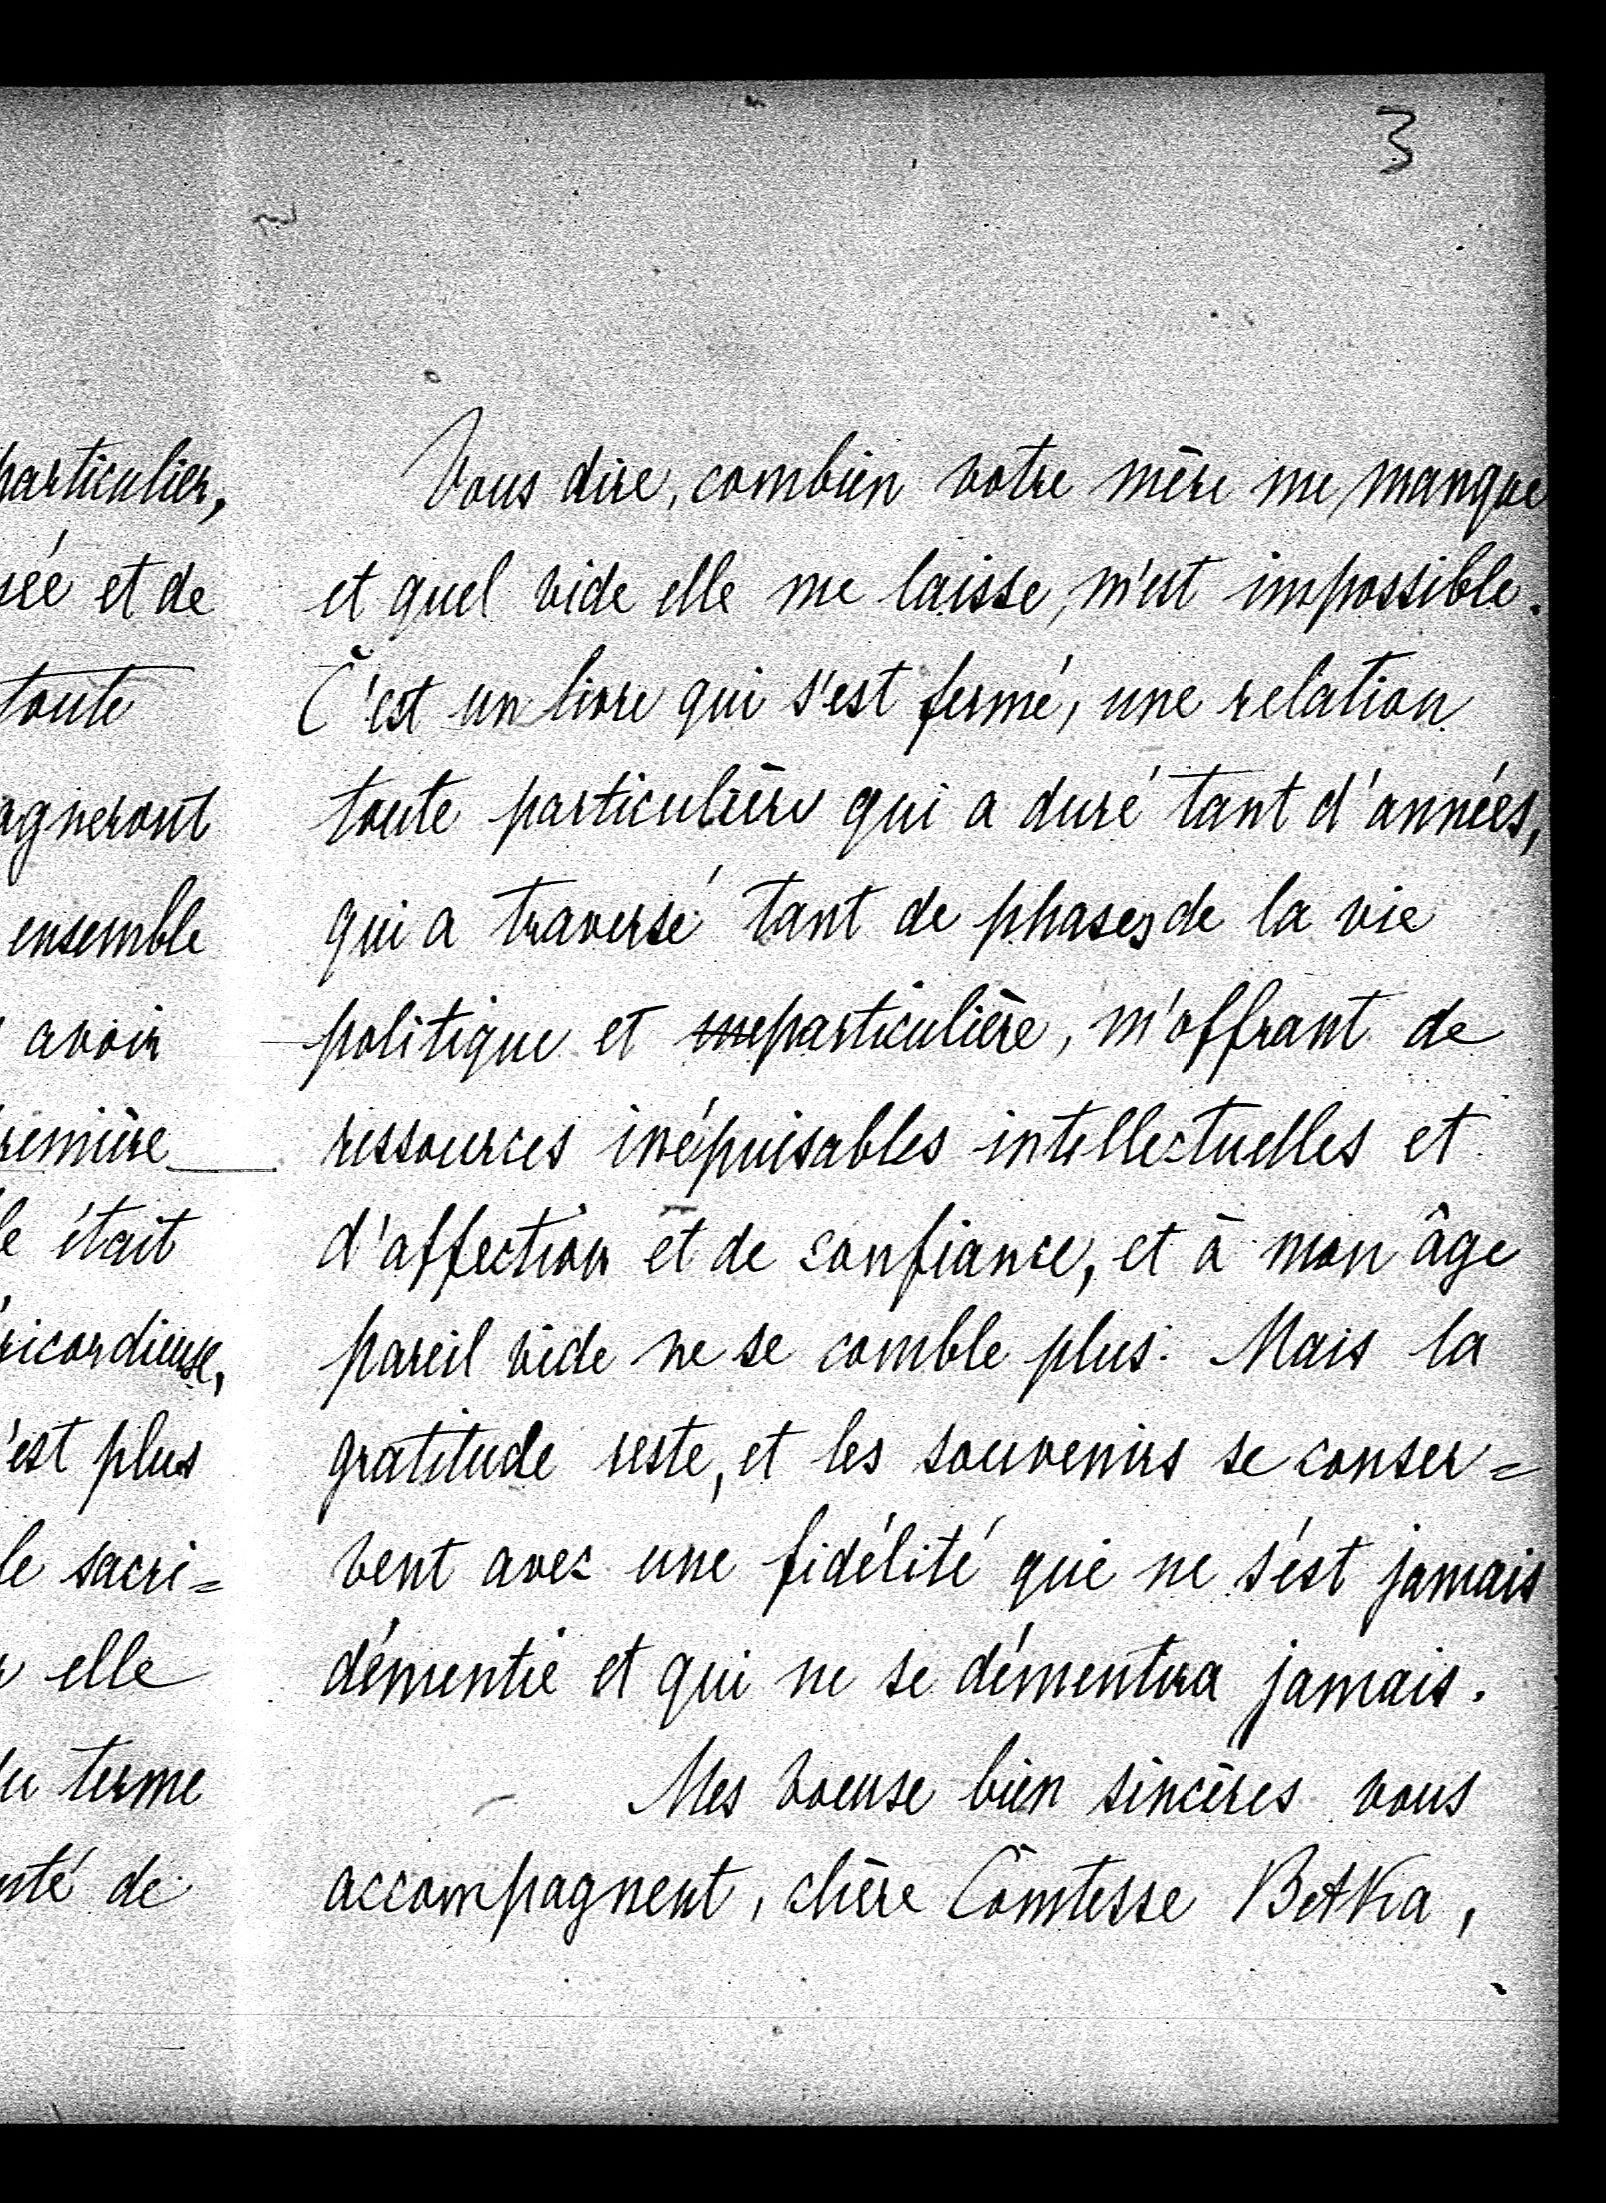 3
particulier,
sée et de
toute
agneront
ensemble
avoir
remière
le était
éricordieuse,
'est plus
le sacri=
elle
du terme
nté de
Vous dire, combien votre mère me manque
et quel vide elle me laisse, m'est impossible.
C'est un livre qui s'est fermé, une relation
toute particulière qui a duré tant d'années,
qui a traversé tant de phases de la vie
politique et particulière, m'offrant de
ressources inépuisables intellectuelles et
d'affection et de confiance, et à mon âge
pareil vide ne se comble plus. Mais la
gratitude reste, et les souvenirs se conser=
vent avec une fidélité qui ne s'est jamais
démentie et qui ne se démentira jamais.
Mes voeuse bien sincères vous
accompagnent, chère Comtesse Betka,